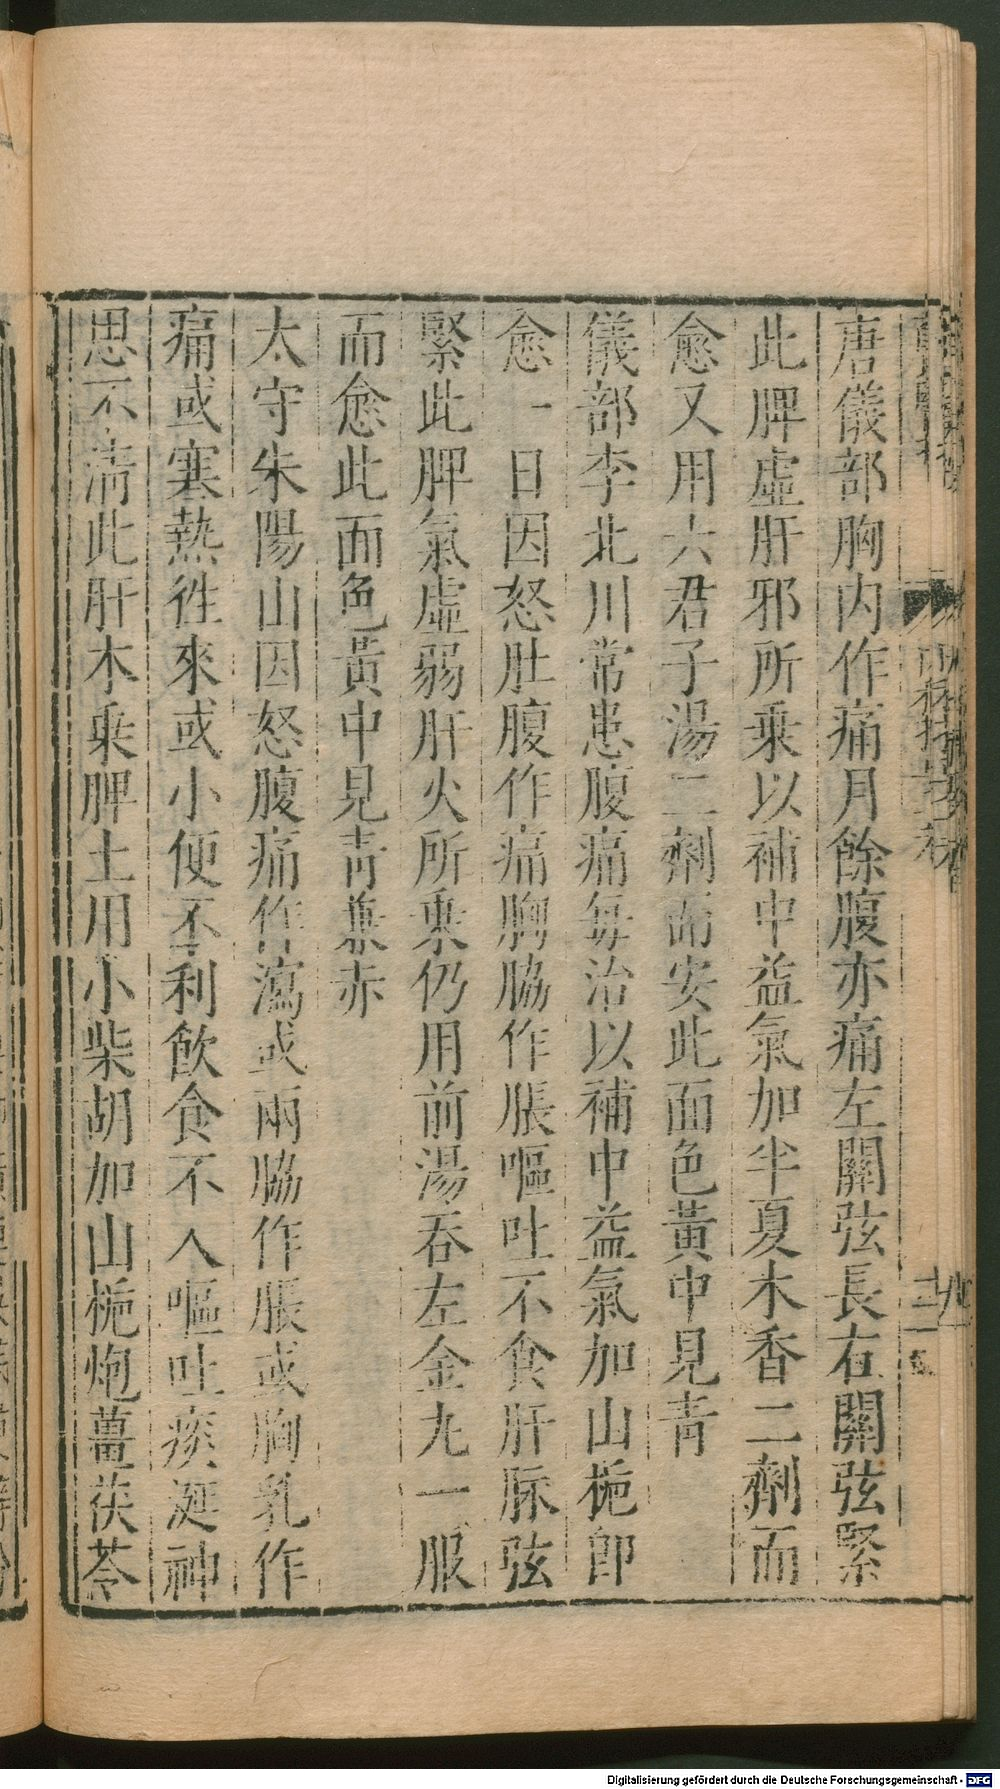 唐儀部胸内作痛月餘腹亦痛左關弦長右關弦緊
此脾虛肝邪所乘以補中益氣加半夏木香二劑而
愈又用六君子湯二劑而安此面色黃中見青
儀部李北川常患腹痛毎治以補中益氣加山梔即
愈一日因怒肚腹作痛胸脇作脹嘔吐不食肝脉弦
緊此脾氣虛弱肝火所乘仍用前湯吞左金丸一服
而愈此面色黃中見青兼赤
太守朱陽山因怒腹痛作瀉或兩脇作脹或胸乳作
痛或寒熱徃來或小便不利飲食不入嘔吐痰涎神
思不清此肝木乘脾土用小柴胡加山梔炮薑茯苓
Digitalisierung gefördert durch die Deutsche Forschungsgemeinschaft - DFG